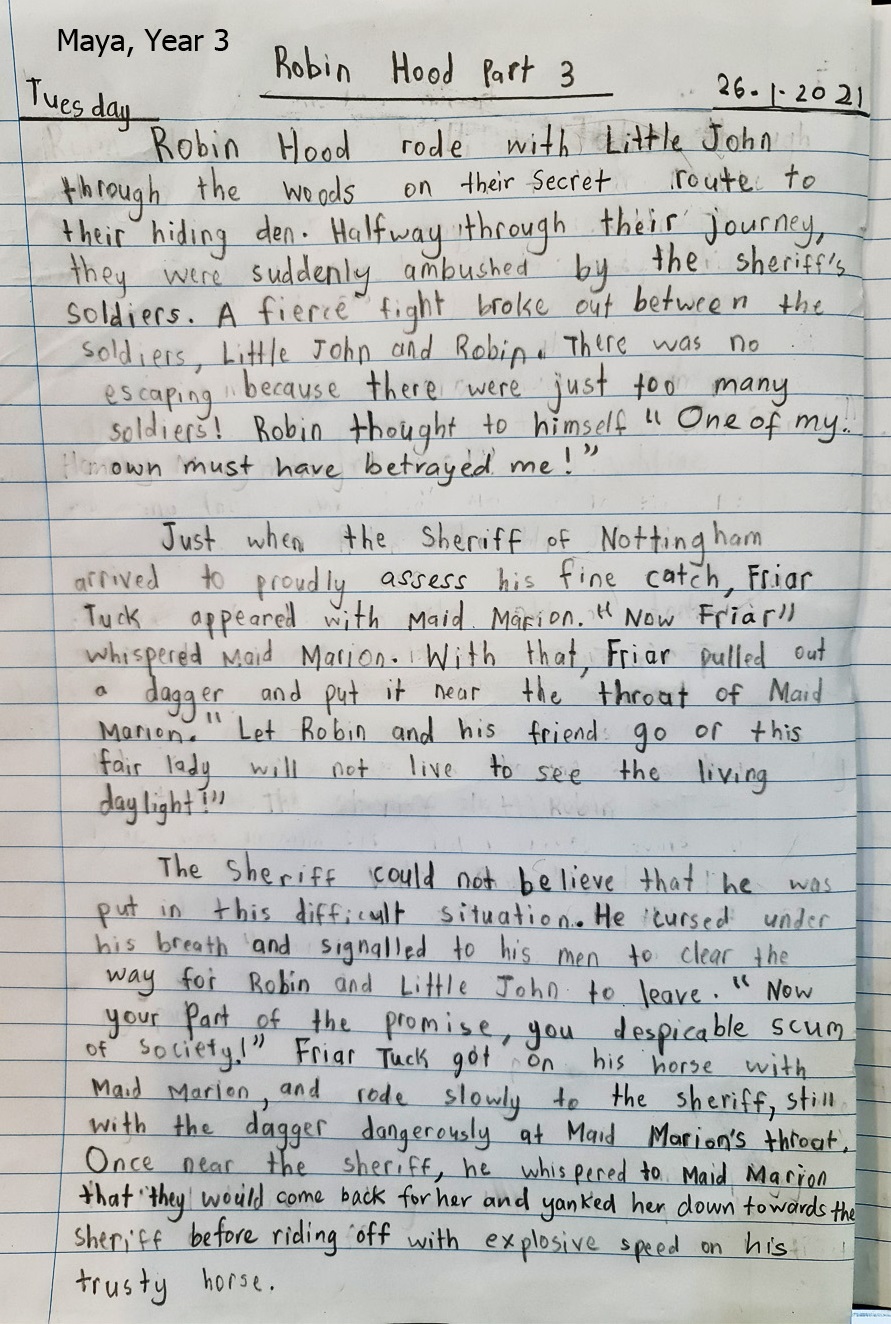 Maya, Year 3
Robin Hood Part 3
Tuesday
26.1.2021
Robin Hood rode with Little John
through the woods on their secret route to
their hiding den. Halfway through their journey,
they were suddenly ambushed by the sheriff's
soldiers. A fierce fight broke out between the
soldiers, Little John and Robin. There was no
escaping because there were just too many
soldiers! Robin thought to himself "One of my
own must have betrayed me!"
Just when the Sheriff of Nottingham
arrived to proudly assess his fine catch, Friar
Tuck appeared with Maid Marion. "Now Friar"
whispered Maid Marion. With that, Friar pulled out
a dagger and put it near the throat of Maid
Marion. "Let Robin and his friend go or this
fair lady will not live to see the living
daylight!"
The Sheriff could not believe that he was
put in this difficult situation. He cursed under
his breath and signalled to his men to clear the
way for Robin and Little John to leave. "Now
your part of the promise, you despicable scum
of society!" Friar Tuck got on his horse with
Maid Marion, and rode slowly to the sheriff, still
with the dagger dangerously at Maid Marion's throat.
Once near the sheriff, he whispered to Maid Marion
that they would come back for her and yanked her down towards the
sheriff before riding off with explosive speed on his
trusty horse.